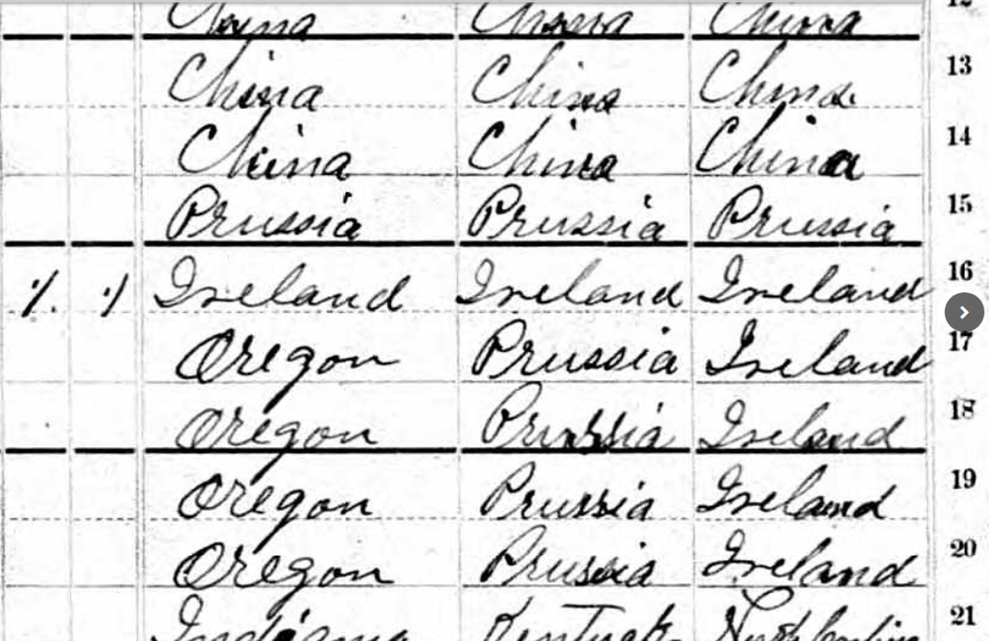 China China China 12
China China China 13
China China China 14
Prussia Prussia Prussia 15
/. / Ireland Ireland Ireland 16
Oregon Prussia Ireland 17
Oregon Prussia Ireland 18
Oregon Prussia Ireland 19
Oregon Prussia Ireland 20
Indiana 21